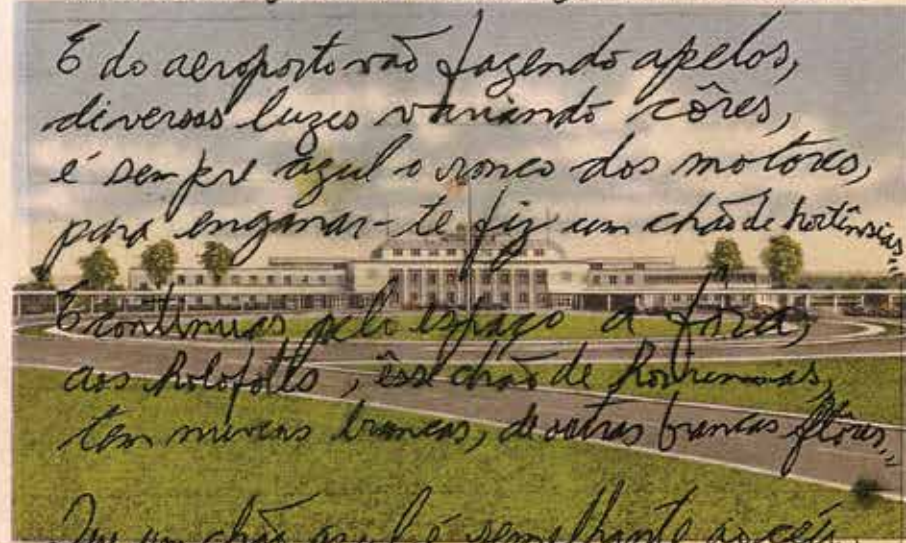 E do aeroporto vão fazendo apelos,
diversas luzes variando côres,
é sempre azul o ronco dos motores,
para enganar-te fiz um chão de hortênsias...
E continuas pelo espaço a fora,
aos holofotes, êsse chão de
tem nuvens brancas, de outras brancas flôres...
Que um chão azul é semelhante ao céu